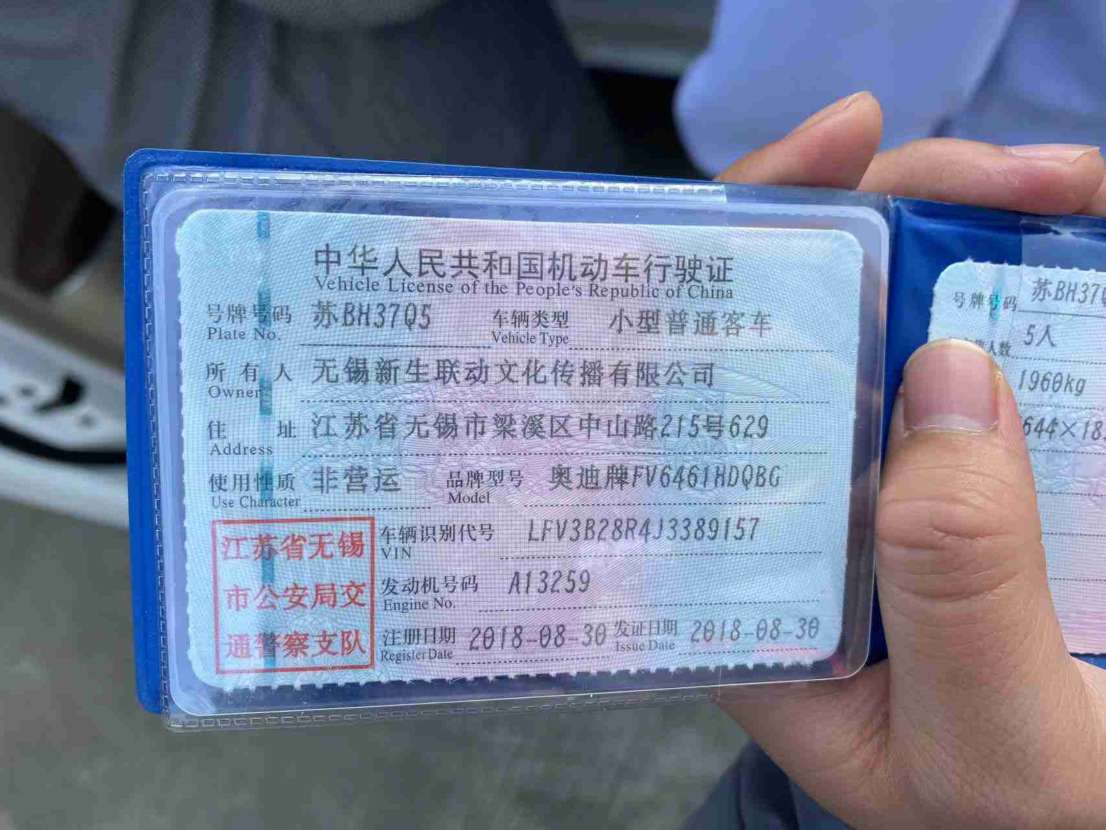 中华人民共和国机动车行驶证
Vehicle License of the People's Republic of China
号牌号码 苏BH37Q5 车辆类型 小型普通客车
Plate No. Vehicle Type
所有人 无锡新生联动文化传播有限公司
Owner
住址 江苏省无锡市梁溪区中山路215号629
Address
使用性质 非营运 品牌型号 奥迪牌FV6461HDQBG
Use Character Model
江苏省无锡
市公安局交
通警察支队
车辆识别代号 LFV3B28R4J3389157
VIN
发动机号码 A13259
Engine No.
注册日期 2018-08-30 发证日期 2018-08-30
Register Date Issue Date
号牌号码 苏BH37Q
人数 5人
1960kg
644×18